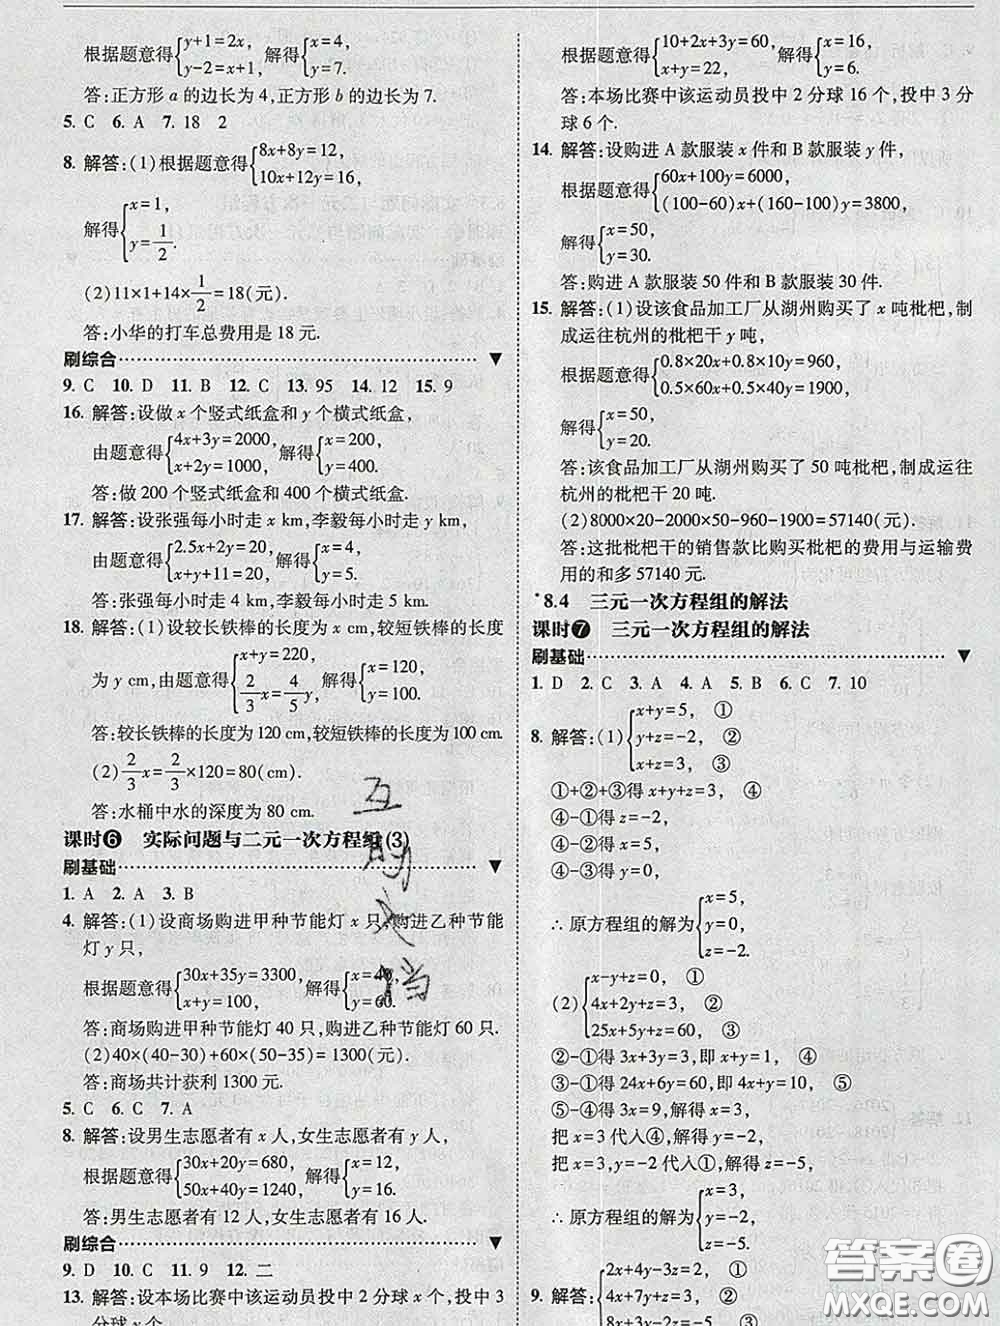 根据题意得{y+1=2x, y-2=x+1, 解得{x=4, y=7.
答:正方形 a 的边长为 4,正方形 b 的边长为 7.
5. C 6. A 7. 18 2
8. 解答:(1)根据题意得{8x+8y=12, 10x+12y=16,
解得{x=1, y=1/2.
(2)11×1+14×1/2=18(元).
答:小华的打车总费用是 18 元.
刷综合
9. C 10. D 11. B 12. C 13. 95 14. 12 15. 9
16. 解答:设做 x 个竖式纸盒和 y 个横式纸盒,
由题意得{4x+3y=2000, x+2y=1000, 解得{x=200, y=400.
答:做 200 个竖式纸盒和 400 个横式纸盒.
17. 解答:设张强每小时走 x km,李毅每小时走 y km,
由题意得{2.5x+2y=20, x+y+11=20, 解得{x=4, y=5.
答:张强每小时走 4 km,李毅每小时走 5 km.
18. 解答:(1)设较长铁棒的长度为 x cm,较短铁棒的长度
为 y cm,由题意得{x+y=220, 2/3x=4/5y, 解得{x=120, y=100.
答:较长铁棒的长度为 120 cm,较短铁棒的长度为 100 cm.
(2)2/3x=2/3×120=80(cm).
答:水桶中水的深度为 80 cm.
课时❻ 实际问题与二元一次方程组(3)
刷基础
1. A 2. A 3. B
4. 解答:(1)设商场购进甲种节能灯 x 只,购进乙种节能
灯 y 只,
根据题意得{30x+35y=3300, x+y=100, 解得{x=40, y=60.
答:商场购进甲种节能灯 40 只,购进乙种节能灯 60 只.
(2)40×(40-30)+60×(50-35)=1300(元).
答:商场共计获利 1300 元.
5. C 6. C 7. A
8. 解答:设男生志愿者有 x 人,女生志愿者有 y 人,
根据题意得{30x+20y=680, 50x+40y=1240, 解得{x=12, y=16.
答:男生志愿者有 12 人,女生志愿者有 16 人.
刷综合
9. D 10. C 11. 9 12. 二
13. 解答:设本场比赛中该运动员投中 2 分球 x 个,投中 3
分球 y 个,
根据题意得{10+2x+3y=60, x+y=22, 解得{x=16, y=6.
答:本场比赛中该运动员投中 2 分球 16 个,投中 3 分
球 6 个.
14. 解答:设购进 A 款服装 x 件和 B 款服装 y 件,
根据题意得{60x+100y=6000, (100-60)x+(160-100)y=3800,
解得{x=50, y=30.
答:购进 A 款服装 50 件和 B 款服装 30 件.
15. 解答:(1)设该食品加工厂从湖州购买了 x 吨枇杷,制
成运往杭州的枇杷干 y 吨,
根据题意得{0.8×20x+0.8×10y=960, 0.5×60x+0.5×40y=1900,
解得{x=50, y=20.
答:该食品加工厂从湖州购买了 50 吨枇杷,制成运往
杭州的枇杷干 20 吨.
(2)8000×20-2000×50-960-1900=57140(元).
答:这批枇杷干的销售款比购买枇杷的费用与运输费
用的和多 57140 元.
*8.4 三元一次方程组的解法
课时❼ 三元一次方程组的解法
刷基础
1. D 2. C 3. A 4. A 5. B 6. C 7. 10
8. 解答:(1){x+y=5, ① y+z=-2, ② x+z=3, ③
①+②+③得 x+y+z=3, ④
④-①得 z=-2,
④-②得 x=5,
④-③得 y=0,
∴ 原方程组的解为{x=5, y=0, z=-2.
(2){x-y+z=0, ① 4x+2y+z=3, ② 25x+5y+z=60, ③
②-①得 3x+3y=3,即 x+y=1, ④
③-①得 24x+6y=60,即 4x+y=10, ⑤
⑤-④得 3x=9,解得 x=3,
把 x=3 代入④,解得 y=-2,
把 x=3,y=-2 代入①,解得 z=-5,
∴ 原方程组的解为{x=3, y=-2, z=-5.
9. 解答:{2x+4y-3z=2, 4x+7y+z=3, 8x+13y+3z=3,
答案圈
MXQE.COM